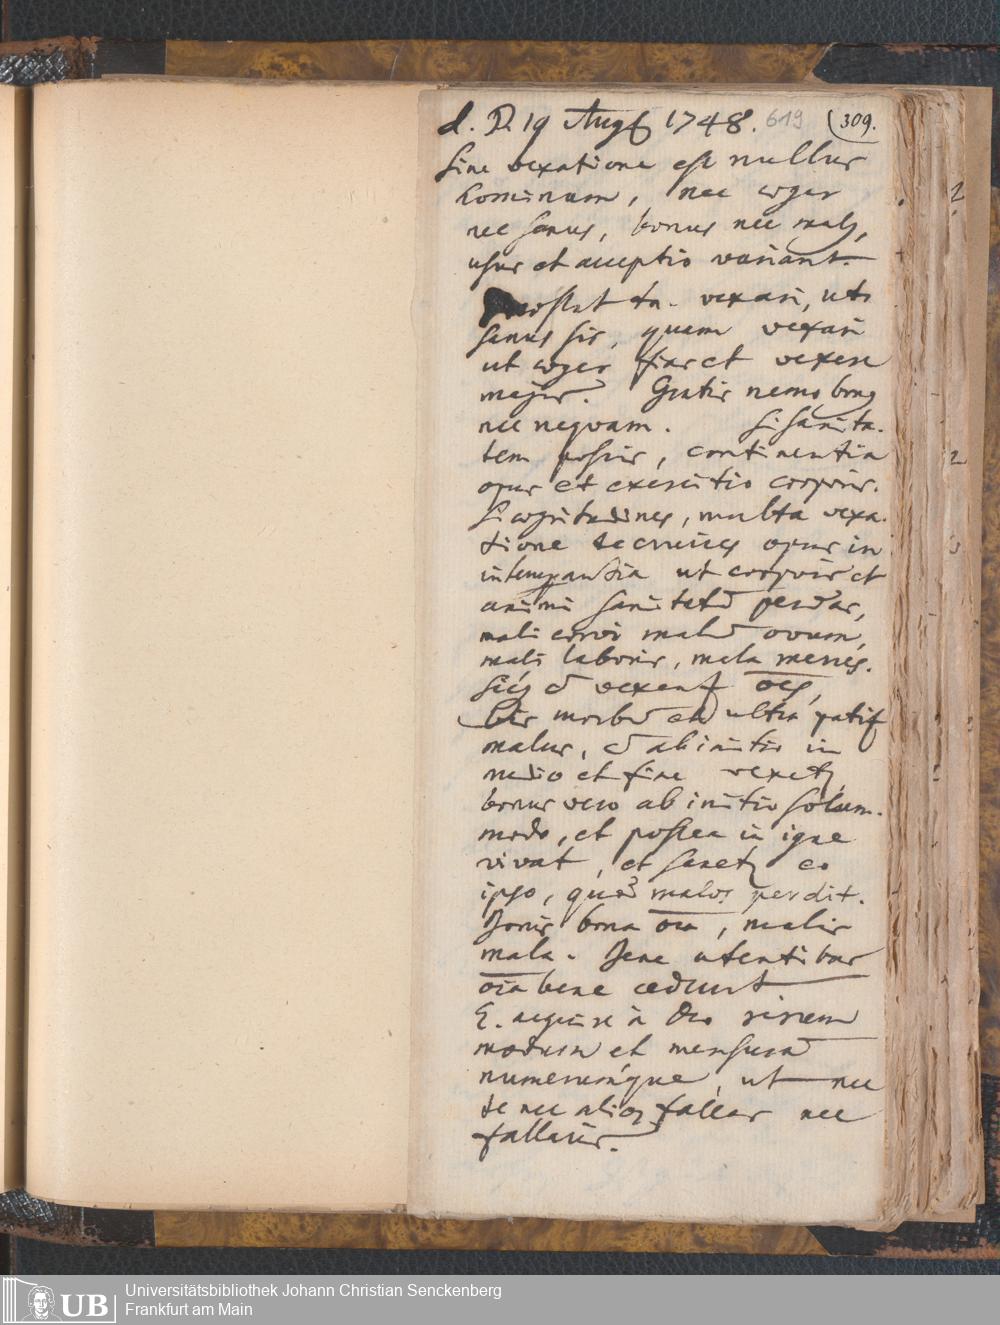 d. D. 19 Aug 1748. 619 (309.
Sine vexatione est nullus
hominum, nec æger
nec sanus, bonus nec mal9,
usus et acceptio variant.
vexari, uti
sanus sis, quam vexari
ut æger fias et vexeris
magis. Gratis nemo bon9
nec nequam. Si sanita-
tem poscis, continentia
opus et exercitio corporis.
Si ægritudines, multa vexa-
tione te crucies opus in
intemperantia ut corporis et
animi sanitatē perdas,
mali corvi malū ovum,
mali laboris, mala messis.
vexent oēs,
bis morbū ultra
malus, ab initio in
medio et fine vexet,
bonus vero ab initio solum-
modo, et postea in igne
vivat, et sanet eo
ipso, quod malos perdit.
Bonis bona oīa, malis
mala. Bene utentibus
oīa bene cedunt
E. a Deo
modum et mensurā
numerumque, ut nec
te nec alios fallas nec
fallaris.
Universitätsbibliothek Johann Christian Senckenberg
UB Frankfurt am Main